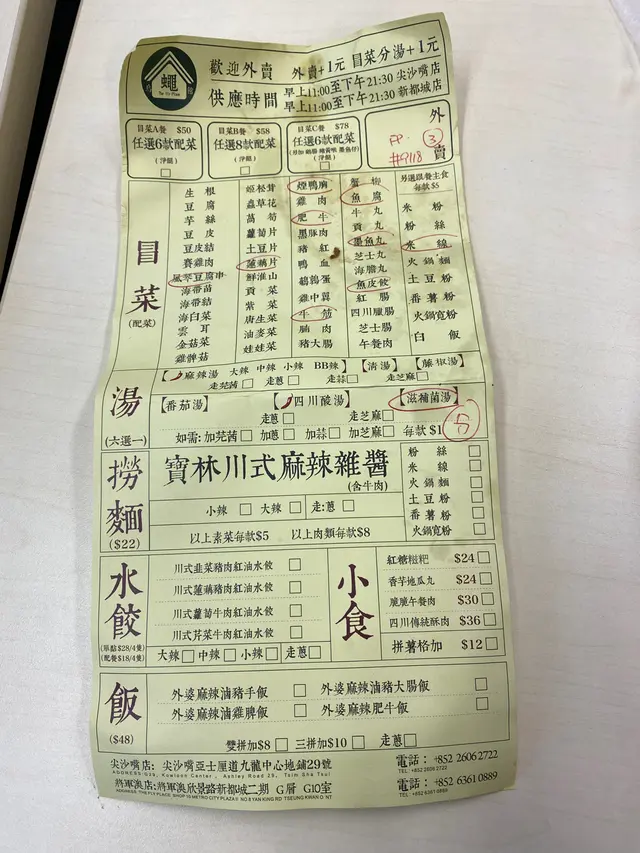 蠅
歡迎外賣 外賣+1元 冒菜分湯+1元
供應時間 早上11:00至下午21:30 尖沙嘴店
早上11:00至下午21:30 新都城店
冒菜A餐 $50
任選6款配菜
(淨餸)
冒菜B餐 $58
任選8款配菜
(淨餸)
冒菜C餐 $78
任選6款配菜
(淨餸)
外賣
③
#9118
冒菜
(配菜)
生根
豆腐
芋絲
豆皮
豆皮結
賽雞肉
風琴豆腐串
海帶苗
海帶結
海白菜
雲耳
金菇菜
雞髀菇
姬松茸
蟲草花
萵筍
蘿蔔片
土豆片
蓮藕片
鮮淮山
貢菜
紫菜
唐生菜
油麥菜
娃娃菜
煙鴨胸
雞肉
肥牛
黑豚肉
豬紅
鴨血
鵪鶉蛋
雞中翼
牛筋
腩肉
豬大腸
蟹柳
魚腐
牛丸
貢丸
墨魚丸
芝士丸
海膽丸
魚皮餃
紅腸
四川臘腸
芝士腸
午餐肉
另選跟餐主食
每款$5
米粉
粉絲
米線
火鍋麵
土豆粉
番薯粉
火鍋寬粉
白飯
湯
(六選一)
【麻辣湯 大辣 中辣 小辣 BB辣】 【清湯】 【藤椒湯】
走芫茜 走蔥 走蒜 走芝麻
【番茄湯】 【四川酸湯】 【滋補菌湯】
走蔥 走芝麻
如需: 加芫茜 加蔥 加蒜 加芝麻 每款$1
撈麵
($22)
寶林川式麻辣雜醬
(含牛肉)
小辣 大辣 走:蔥
以上素菜每款$5 以上肉類每款$8
粉絲
米線
火鍋麵
土豆粉
番薯粉
火鍋寬粉
水餃
(單點$28/4隻)
(配餐$18/4隻)
川式韭菜豬肉紅油水餃
川式蓮藕豬肉紅油水餃
川式蘿蔔牛肉紅油水餃
川式芹菜牛肉紅油水餃
大辣 中辣 小辣 走蔥
小食
紅糖糍粑 $24
香芋地瓜丸 $24
脆脆午餐肉 $30
四川傳統酥肉 $36
拼薯格加 $12
飯
($48)
外婆麻辣滷豬手飯 外婆麻辣滷豬大腸飯
外婆麻辣滷雞脾飯 外婆麻辣肥牛飯
雙拼加$8 三拼加$10 走蔥
尖沙嘴店: 尖沙嘴亞士厘道九龍中心地鋪29號 電話: +852 2606 2722
ADDRESS: G29, Kowloon Center, Ashley Road 29, Tsim Sha Tsui TEL: +852 2606 2722
將軍澳店:將軍澳欣景路新都城二期 G層 G10室 電話: +852 6361 0889
TEL: +852 6361 0889